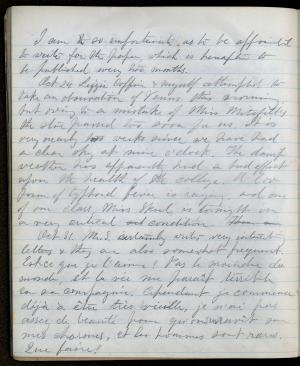 I am to so unfortunate as to be appointed
to write for the paper which is hereafter to
be published every two months.
Oct 24 Lizzie Coffin & myself attempted to
take an observation of Venus this evening
but owing to a mistake of Miss
the star passed too soon for us. It is
very nearly two weeks since we have had
a clear sky at nine o'clock. The damp
weather has apparently had a bad effect
upon the health of the college. A low
form of typhoid fever is raging, and one
of our class, Miss is to-night in
a very critical condition
Oct 31. Mr. S. certainly writes very interesting
letters & they are also somewhat frequent.
Est-ce que je l'aime? Pas le moindre du
monde, et la vie me parait terrible
en sa compagnie. Cependant je commence
déjà à être très vieille, je n'ai pas
assez de beauté pour
mes charmes, et les hommes sont rares.
Que faire!